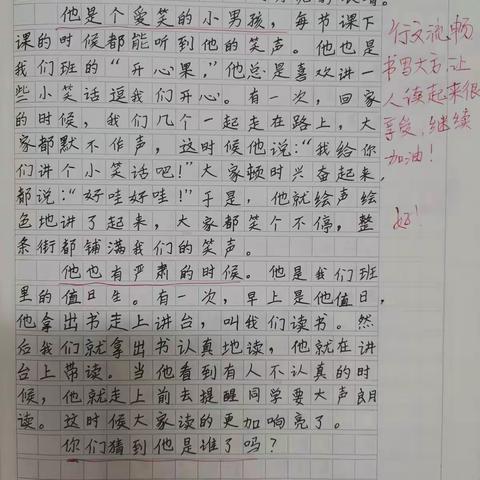 他是个爱笑的小男孩，每节课下
课的时候都能听到他的笑声。他也是
我们班的“开心果，”他总是喜欢讲一
些小笑话逗我们开心。有一次，回家
的时候，我们几个一起走在路上，大
家都默不作声，这时候他说：“我给你
们讲个小笑话吧！”大家顿时兴奋起来，
都说：“好哇好哇！”于是，他就绘声绘
色地讲了起来，大家都笑个不停，整
条街都铺满我们的笑声。
他也有严肃的时候。他是我们班
里的值日生。有一次，早上是他值日，
他拿出书走上讲台，叫我们读书。然
后我们就拿出书认真地读，他就在讲
台上带读。当他看到有人不认真的时
候，他就走上前去提醒同学要大声朗
读。这时候大家读的更加响亮了。
你们猜到他是谁了吗？
行文流畅
书写大方，让
人读起来很
享受，继续
加油！
好！